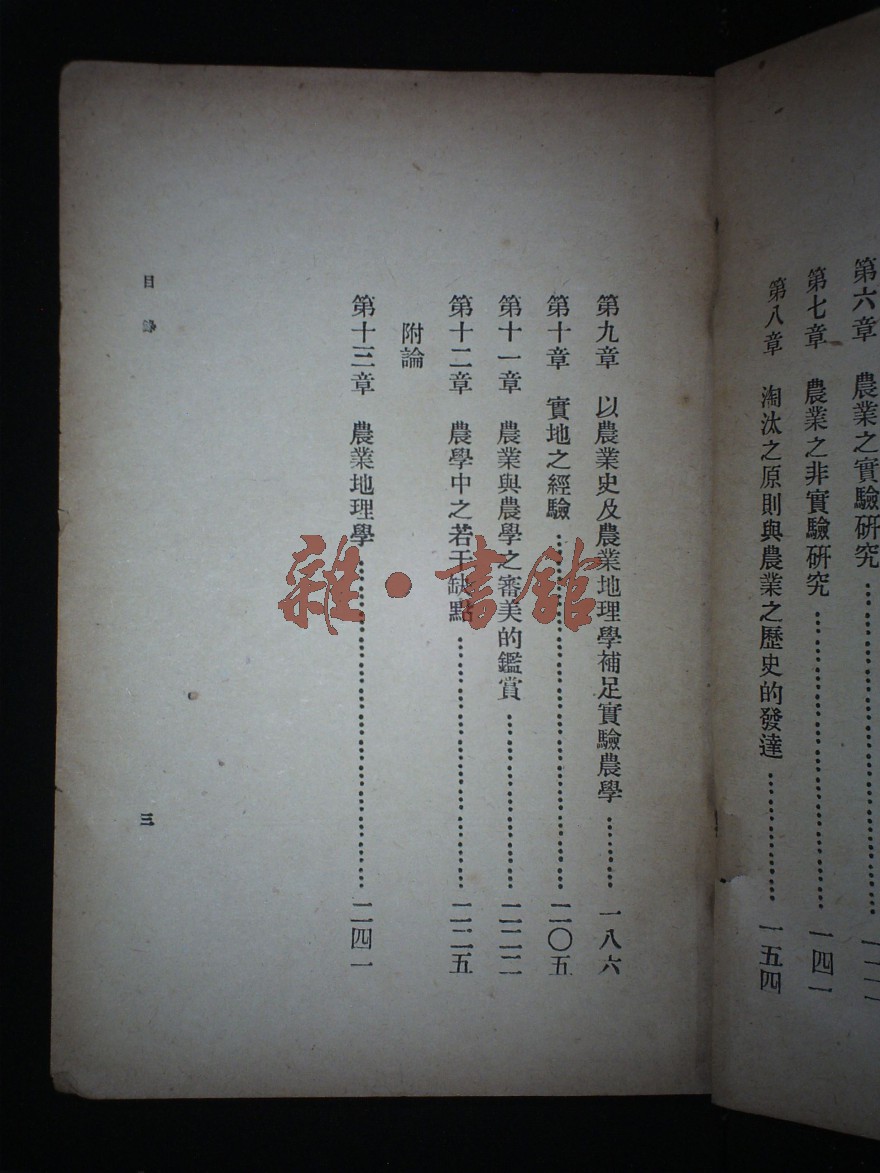 第六章　農業之實驗研究
第七章　農業之非實驗研究………………一四一
第八章　淘汰之原則與農業之歷史的發達………………一五四
第九章　以農業史及農業地理學補足實驗農學………一八六
第十章　實地之經驗………………………………二〇五
第十一章　農業與農學之審美的鑑賞………………二二二
第十二章　農學中之若干缺點………………………二二五
附論
第十三章　農業地理學………………………………二四一
目錄
三
雜·書館